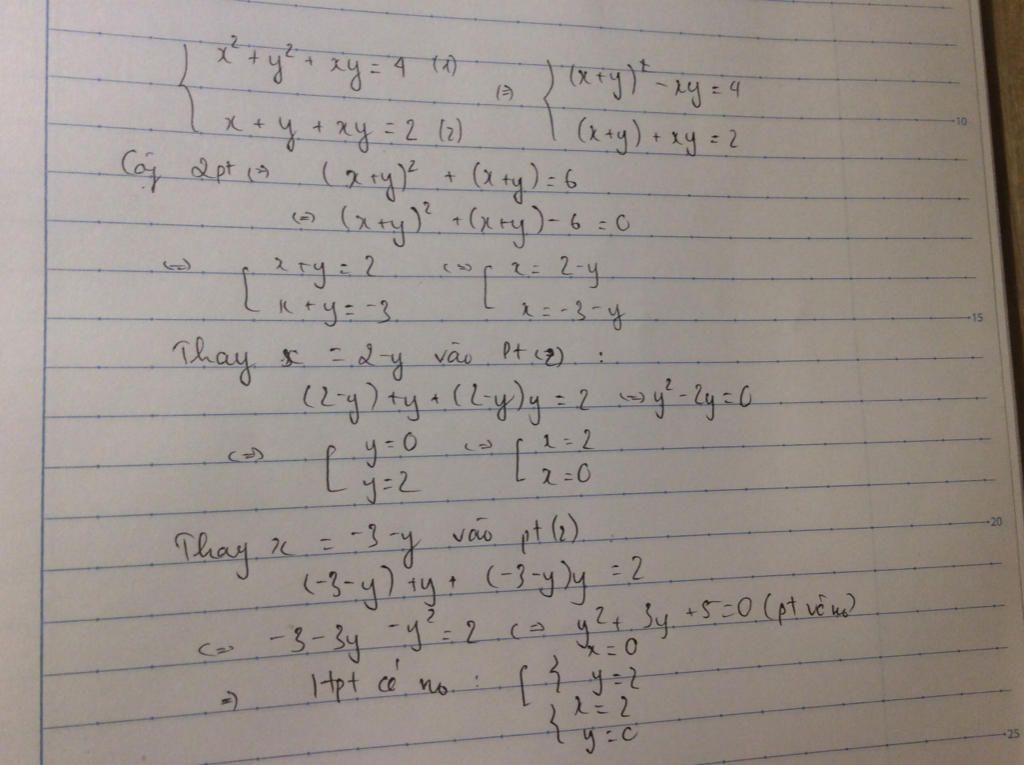 { x² + y² + xy = 4 (1) (=) { (x+y)² - xy = 4
x + y + xy = 2 (2) (x+y) + xy = 2
10
Cộg 2pt (=) (x+y)² + (x+y) = 6
(=) (x+y)² + (x+y) - 6 = 0
(=) [ x+y = 2 (=) [ x = 2-y
x + y = -3 x = -3-y
15
Thay x = 2-y vào pt(2) :
(2-y) + y + (2-y)y = 2 (=) y² - 2y = 0
(=) [ y = 0 (=) [ x = 2
y = 2 x = 0
20
Thay x = -3-y vào pt(2)
(-3-y) + y + (-3-y)y = 2
(=) -3-3y -y² = 2 (=) y² + 3y + 5 = 0 (pt vô no)
=) Hpt có no : [ { x = 0
y = 2
{ x = 2
y = 0
25